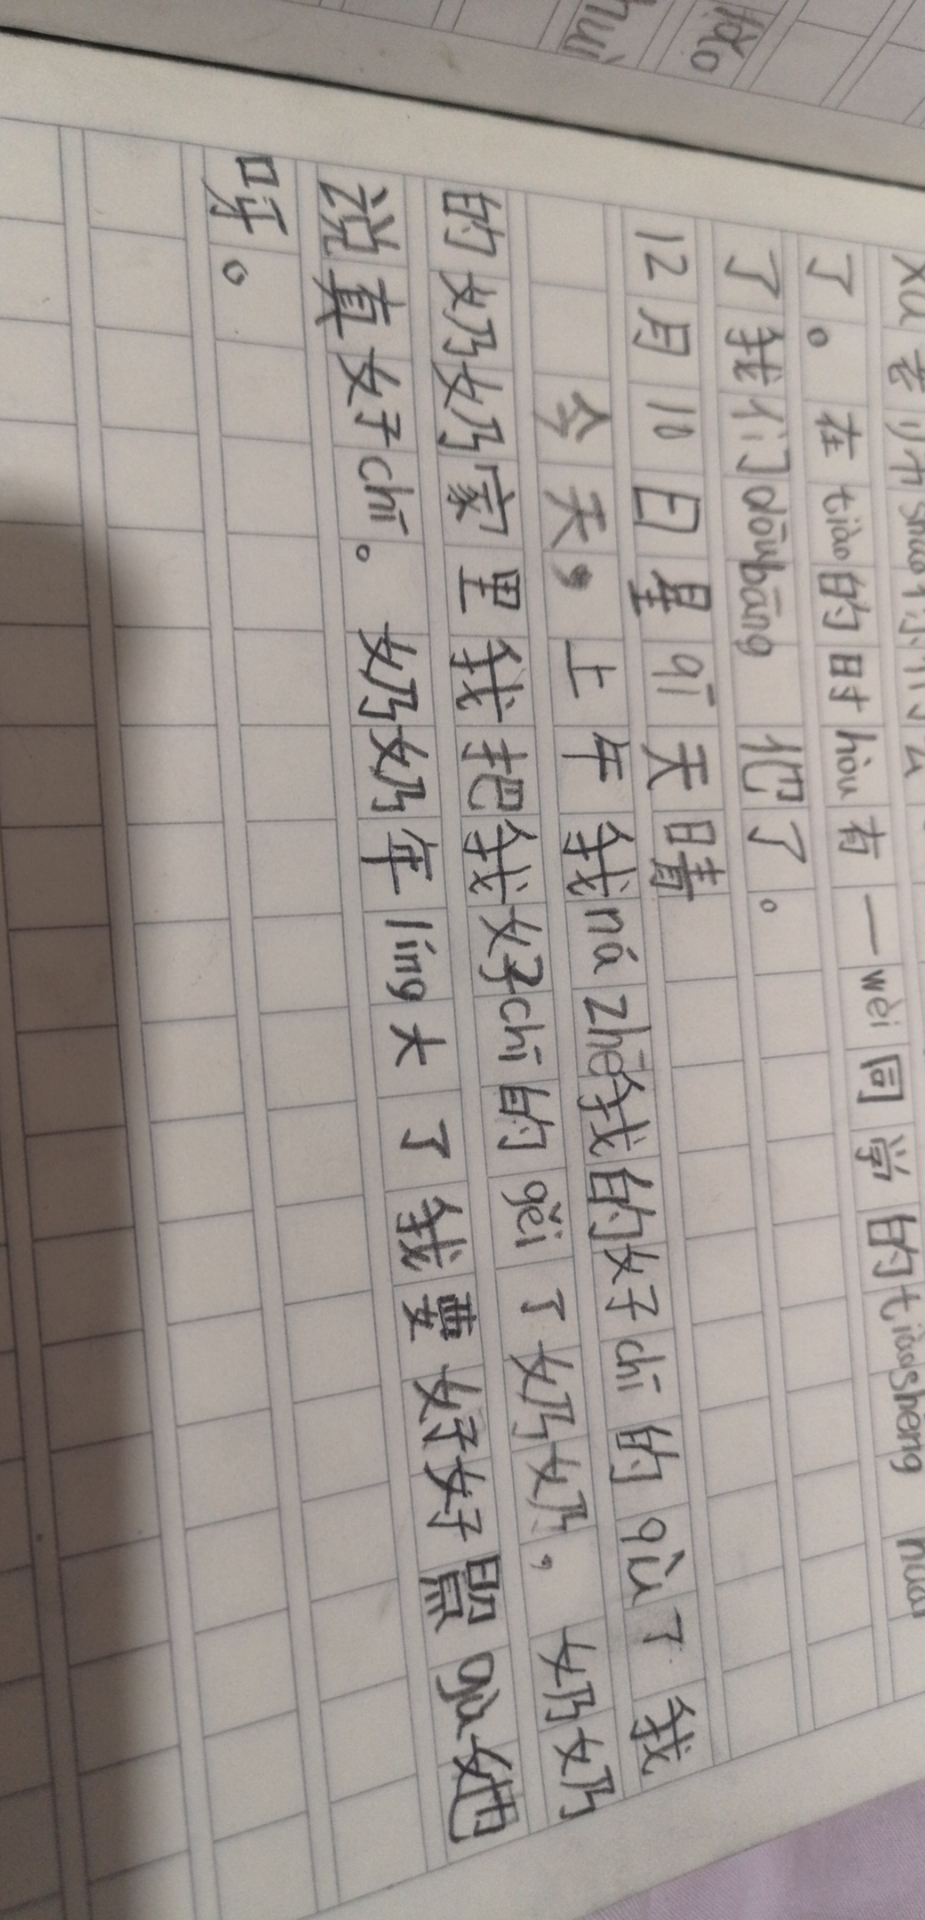 了。在tiào的时hòu有一wèi同学的tiàoshéng
了我们dōubāng 他了。
12月10日星qī天晴
今天，上午我ná zhe我的好chī的qù了我
的奶奶家里我把我好chī的gěi了奶奶，奶奶
说真好chī。奶奶年líng大了我要好好照gù她
呀。